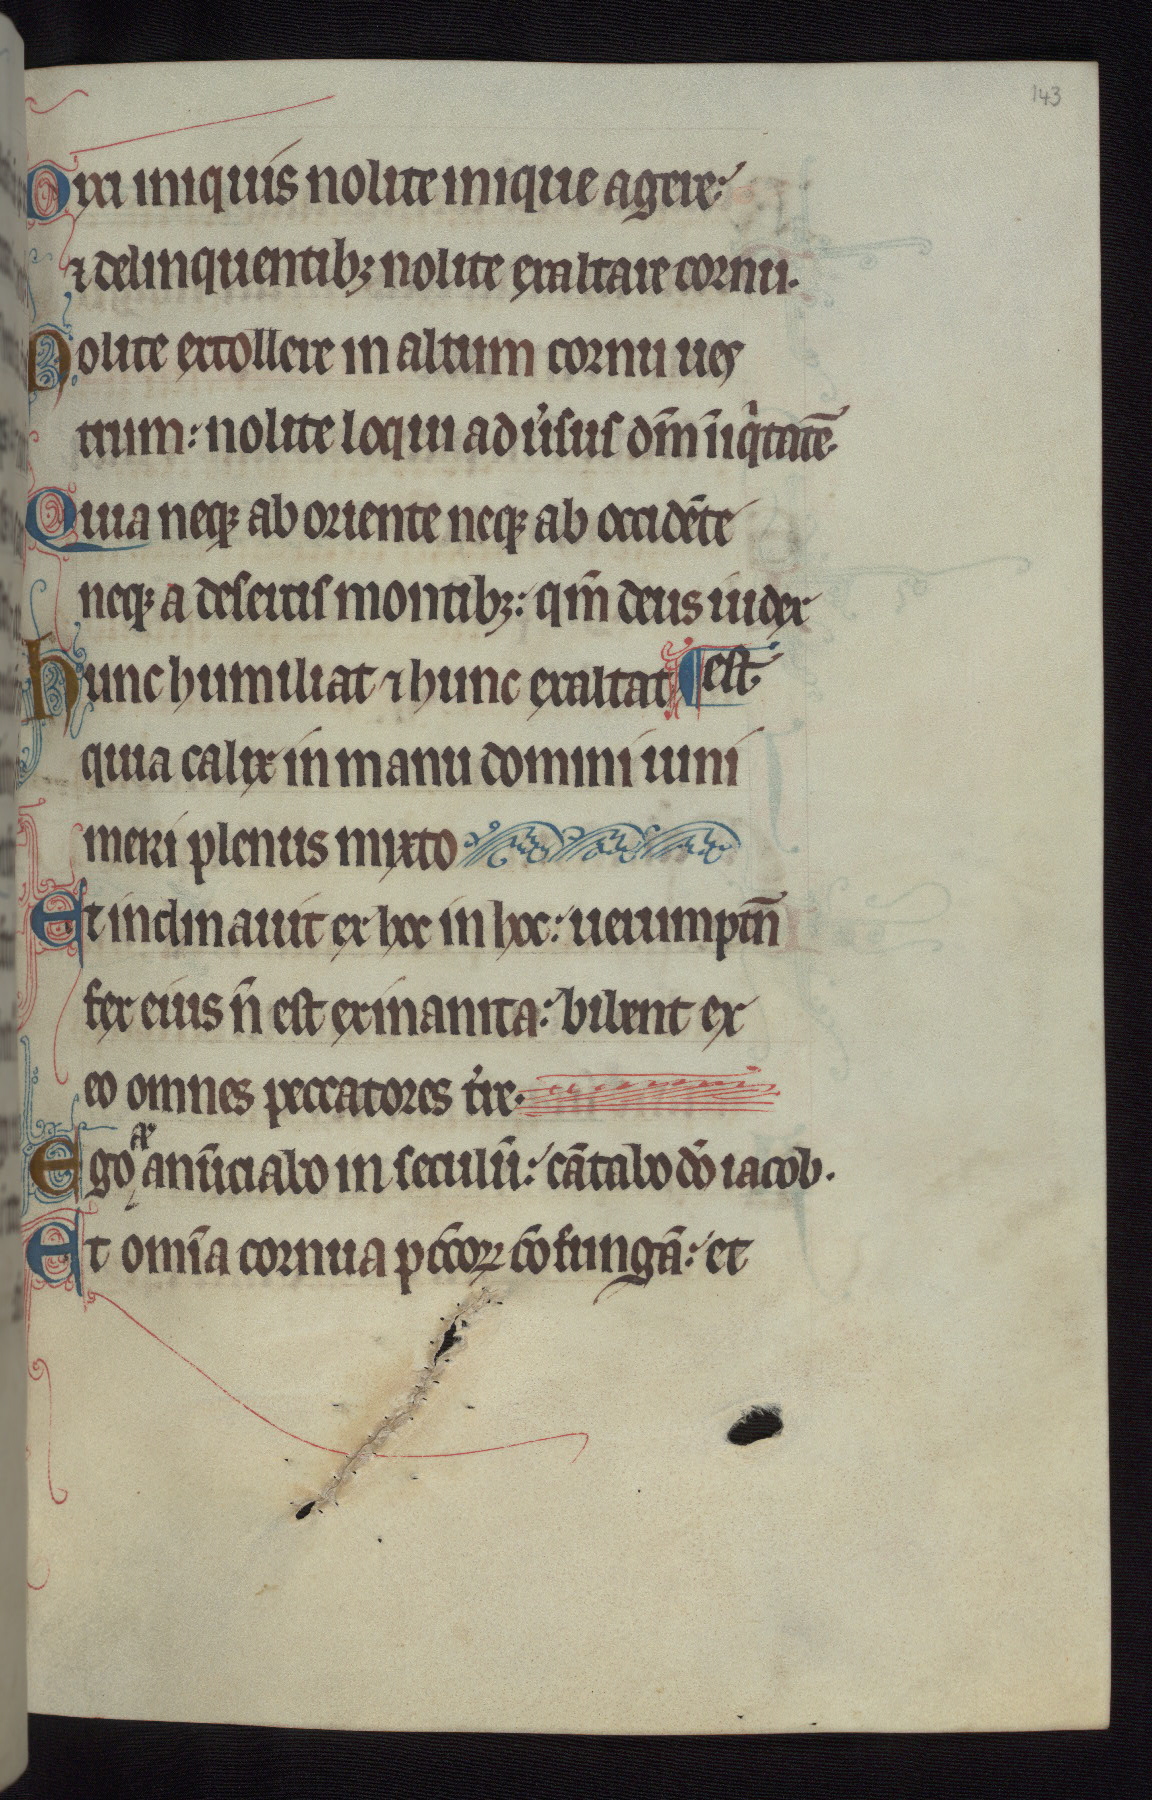 143
Dixi iniquis nolite inique agere:
⁊ delinquentibꝫ nolite exaltare cornu.
Nolite extollere in altum cornu ues
trum: nolite loqui adu̾sus dm̄ īiqͥtatē.
Quia neqꝫ ab oriente neqꝫ ab occidēte
neqꝫ a desertis montibꝫ: qm̄ deus iudex
hunc humiliat ⁊ hunc exaltat ¶ est.
quia calix in manu domini uini
meri plenus mixto
Et inclinauit ex hoc in hoc: uerumptn̄
fex eius n̄ est exinanita: bibent ex
eo omnes peccatores tr̾re.
Ego aū anūciabo in seculū: cātabo dō iacob.
Et omīa cornua pc̄coꝝ cōfringā: et